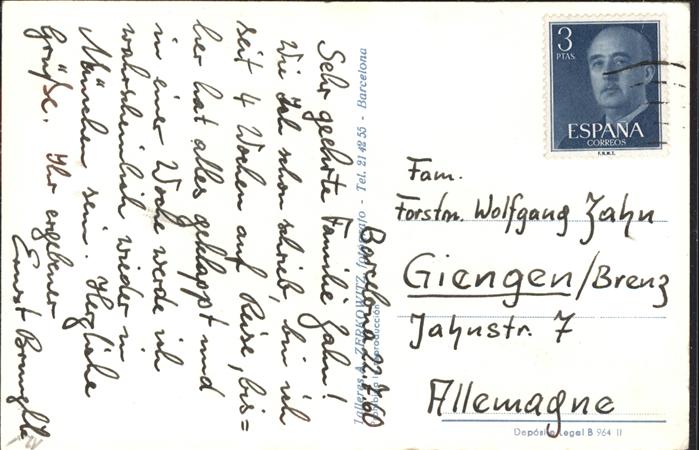 Barcelona 22.7.60
Sehr geehrte Familie Zahn!
Wie ich schon schrieb, bin ich
seit 4 Wochen auf Reise, bis=
her hat alles geklappt und
in einer Woche werde ich
wahrscheinlich wieder in
München sein. Herzliche
Grüße. Ihr ergebener
Ernst
Talleres A. ZERKOWITZ - Tel. 21 42 55 - Barcelona
3
PTAS
ESPAÑA
CORREOS
F.N.M.T.
Fam.
Forstm. Wolfgang Zahn
Giengen/Brenz
Jahnstr. 7
Allemagne
Depósito Legal B 964 II